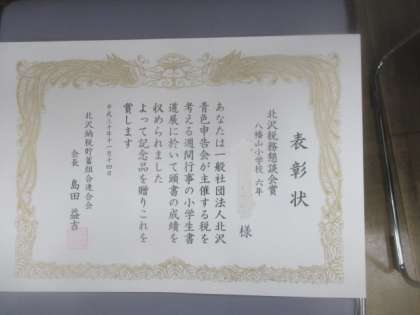 表彰状
北沢税務懇談会賞
八幡山小学校 六年
様
あなたは一般社団法人北沢
青色申告会が主催する税を
考える週間行事の小学生書
道展に於いて頭書の成績を
収められました
よって記念品を贈りこれを
賞します
平成三十年十一月十四日
北沢納税貯蓄組合連合会
会長 島田 益吉